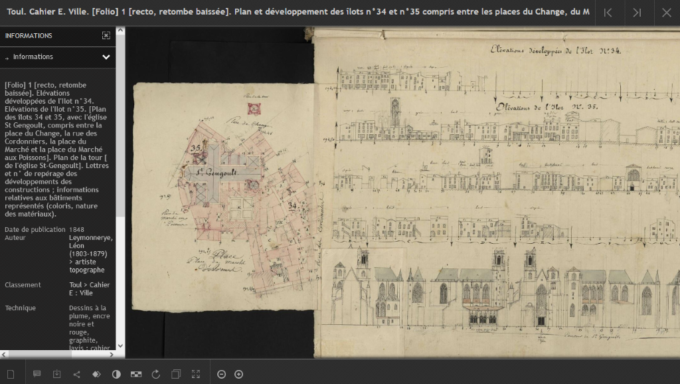 Toul. Cahier E. Ville. [Folio] 1 [recto, retombe baissée]. Plan et développement des îlots n°34 et n°35 compris entre les places du Change, du M
INFORMATIONS
Informations
[Folio] 1 [recto, retombe
baissée]. Elévations
développées de l'îlot n°34.
Elévations de l'îlot n°35. [Plan
des îlots 34 et 35, avec l'église
St Gengoult, compris entre la
place du Change, la rue des
Cordonniers, la place du
Marché et la place du Marché
aux Poissons]. Plan de la tour [
de l'église St-Gengoult]. Lettres
et n° de repérage des
développements des
constructions ; informations
relatives aux bâtiments
représentés (coloris, nature
des matériaux).
Date de publication 1848
Auteur Leymonnerye,
Léon
(1803-1879)
> artiste
topographe
Classement Toul > Cahier
E : Ville
Technique Dessins à la
plume, encre
noire et
rouge,
graphite,
lavis ; cahier
Elévations développées de l'Ilot N° 34.
Elévations de l'Ilot N° 35.
35
St Gengoult
34